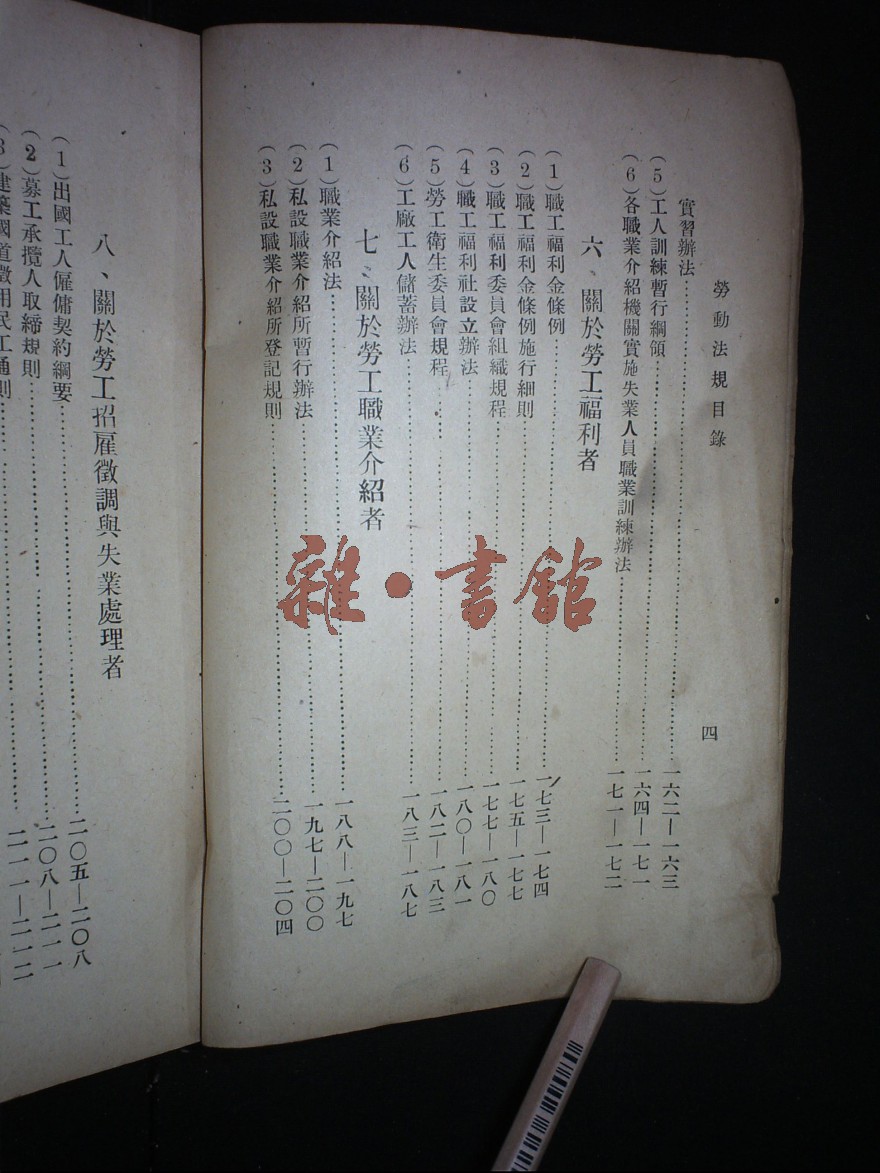 勞動法規目錄
四
實習辦法……一六二—一六三
(5)工人訓練暫行綱領……一六四—一七一
(6)各職業介紹機關實施失業人員職業訓練辦法……一七一—一七二
六、關於勞工福利者
(1)職工福利金條例……一七三—一七四
(2)職工福利金條例施行細則……一七五—一七七
(3)職工福利委員會組織規程……一七七—一八〇
(4)職工福利社設立辦法……一八〇—一八一
(5)勞工衛生委員會規程……一八二—一八三
(6)工廠工人儲蓄辦法……一八三—一八七
七、關於勞工職業介紹者
(1)職業介紹法……一八八—一九七
(2)私設職業介紹所暫行辦法……一九七—二〇〇
(3)私設職業介紹所登記規則……二〇〇—二〇四
八、關於勞工招雇徵調與失業處理者
(1)出國工人僱傭契約綱要……二〇五—二〇八
(2)募工承攬人取締規則……二〇八—二一一
(3)建築國道徵用民工通則……二一一—二一二
雜·書館